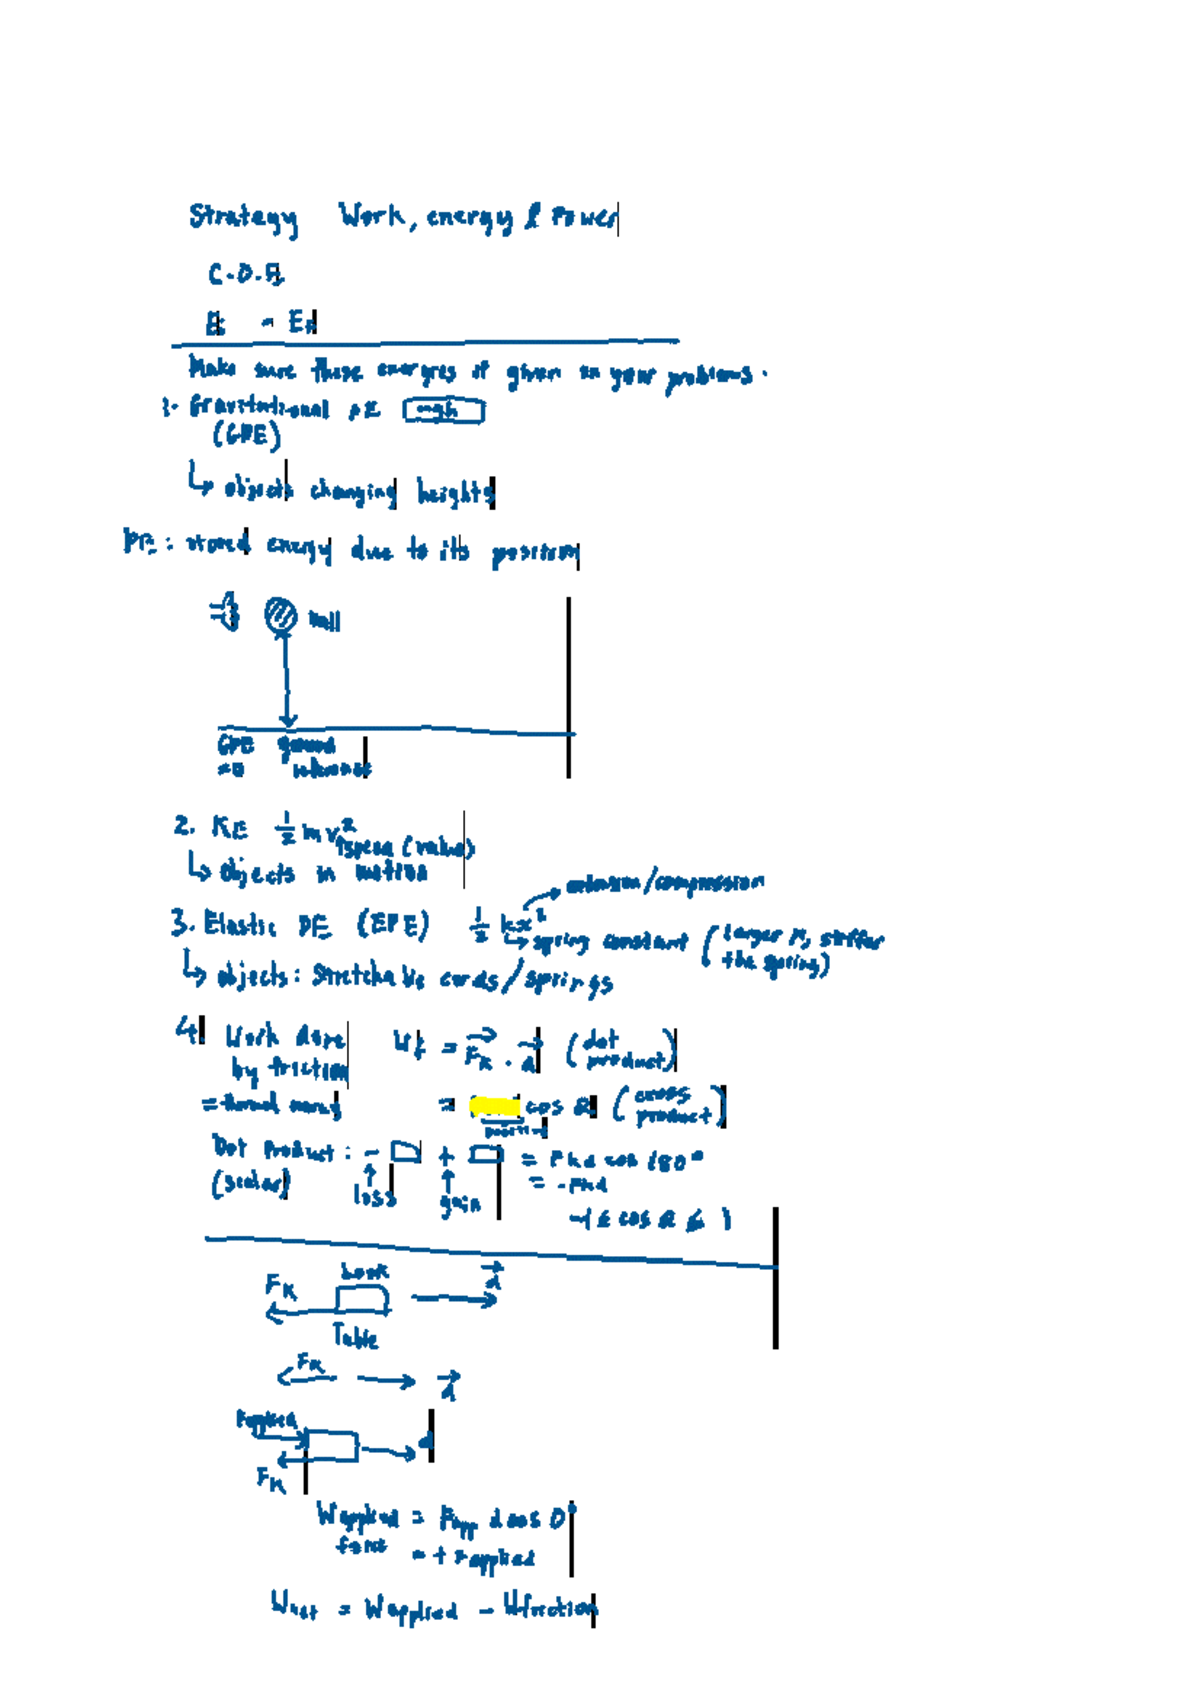 Strategy Work, energy & Power
C.O.E
Ei = Ef
Make sure these energies if given in your problems.
1. Gravitational PE mgh
(GPE)
↳ objects changing heights
PE: stored energy due to its position
Ball
GPE ground
=0 reference
2. KE 1/2 mv² ↑speed (value)
↳ objects in motion
→ extension/compression
3. Elastic PE (EPE) 1/2 kx²
↳ spring constant (larger k, stiffer the spring)
↳ objects: Stretchable cords/springs
4. Work done by friction Wf = Fk · d (dot product)
= thermal energy = cos θ (cross product)
positive
Dot Product: - + = Fkd cos 180°
(scalar) ↑ loss ↑ gain = -Fkd
-1 ≤ cos θ ≤ 1
Fk book d
Table
Fk d
Fapplied
Fk d
Wapplied force = Fapp d cos 0°
= + Fapplied
Wnet = Wapplied - Wfriction